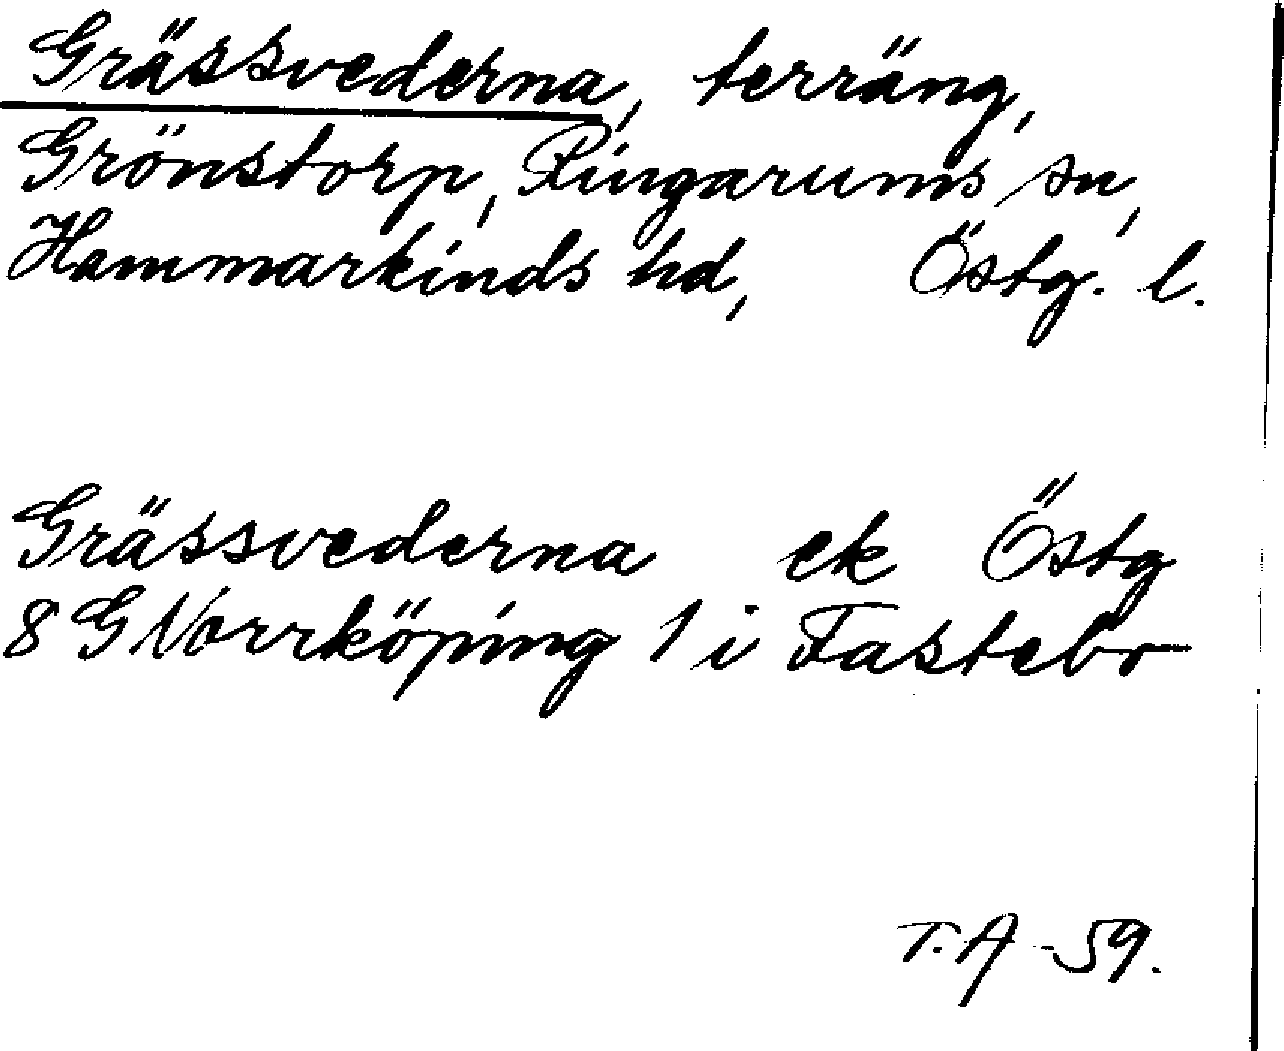 Grässvederna, terräng,
Grönstorp, Ringarums sn,
Hammarkinds hd, Östg. l.
Grässvederna ek Östg
8 G Norrköping 1 i Fastebo
T. A -59.